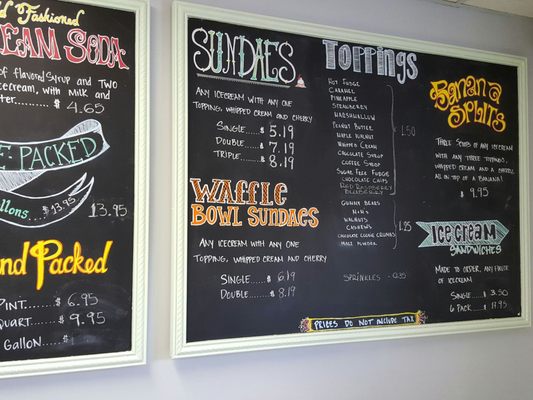 Old Fashioned
Cream Soda
of flavored syrup and two
icecream, with milk and
$ 4.65
Packed
$13.95
13.95
Hand Packed
Pint $ 6.95
Quart $ 9.95
Gallon $
Sundaes
Any icecream with any one
topping, whipped cream and cherry
Single $ 5.19
Double $ 7.19
Triple $ 8.19
Waffle
Bowl Sundaes
Any icecream with any one
topping, whipped cream and cherry
Single $ 6.19
Double $ 8.19
Toppings
Hot Fudge
Caramel
Pineapple
Strawberry
Marshmallow
Peanut Butter
Maple Walnut
Whipped Cream
Chocolate Syrup
Coffee Syrup
Sugar Free Fudge
Chocolate Chips
Red Raspberry
Blueberry
1.50
Gummy Bears
M+Ms
Walnuts
Cashews
Chocolate Cookie Crumbs
Malt Powder
1.25
Sprinkles - 0.35
Prices Do Not Include Tax
Banana
Splits
Three scoops of any icecream
with any three toppings,
whipped cream and a cherry
all on top of a banana!
$ 9.95
Ice Cream
Sandwiches
Made to order, any flavor
of icecream
Single $ 3.50
6 Pack